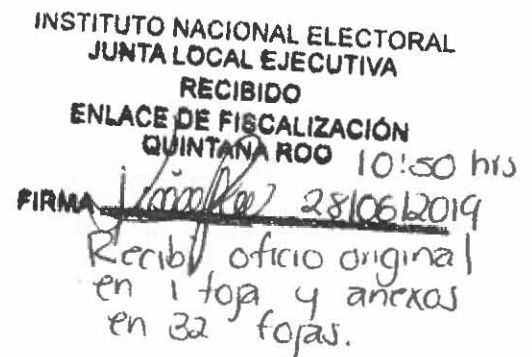 INSTITUTO NACIONAL ELECTORAL
JUNTA LOCAL EJECUTIVA
RECIBIDO
ENLACE DE FISCALIZACIÓN
QUINTANA ROO 10:50 hrs
FIRMA 28/06/2019
Recibí oficio original
en 1 foja y anexos
en 32 fojas.